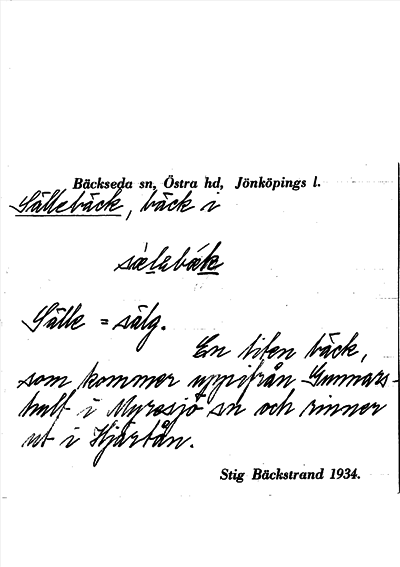 Bäckseda sn, Östra hd, Jönköpings l.
Sällebäck, bäck i
sælebäk
Sälle = sälg.
En liten bäck,
som kommer uppifrån Gunnars-
hult i Myresjö sn och rinner
ut i Hjärtån.
Stig Bäckstrand 1934.